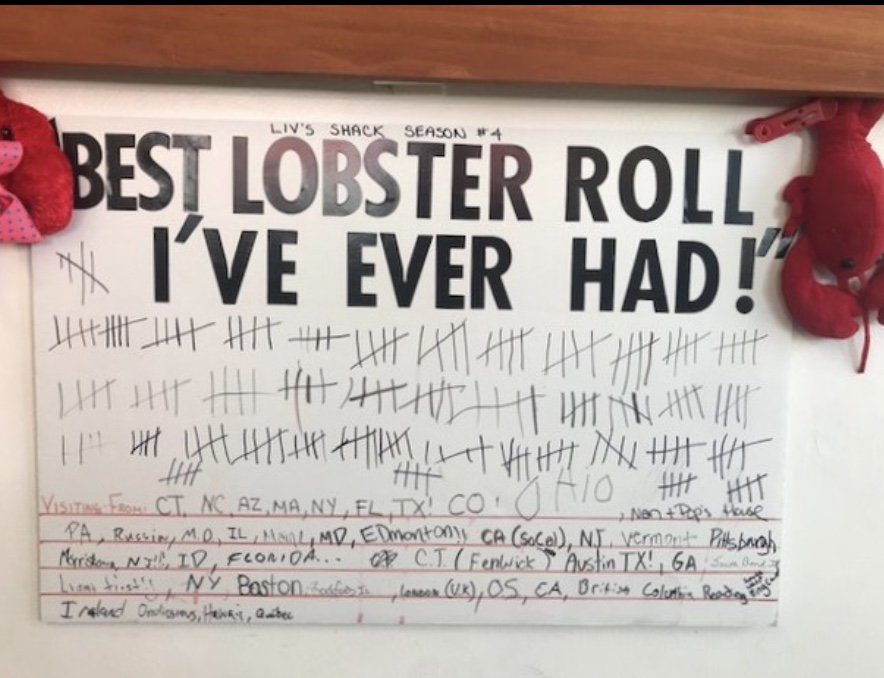 LIV'S SHACK SEASON #4
"BEST LOBSTER ROLL
I'VE EVER HAD!"
VISITING FROM: CT, NC, AZ, MA, NY, FL, TX! CO! OHIO, Nan + Pop's House
PA, Russia, M.O, IL, MD, EDmonton!!, CA (SoCal), NJ, Vermont Pittsburgh,
NJ!!, ID, FLORIDA... C.T. (Fenwick) Austin TX!, GA
NY, Boston, London (U.K), OS, CA, British Columbia Reading
Ireland Hawaii, Quebec